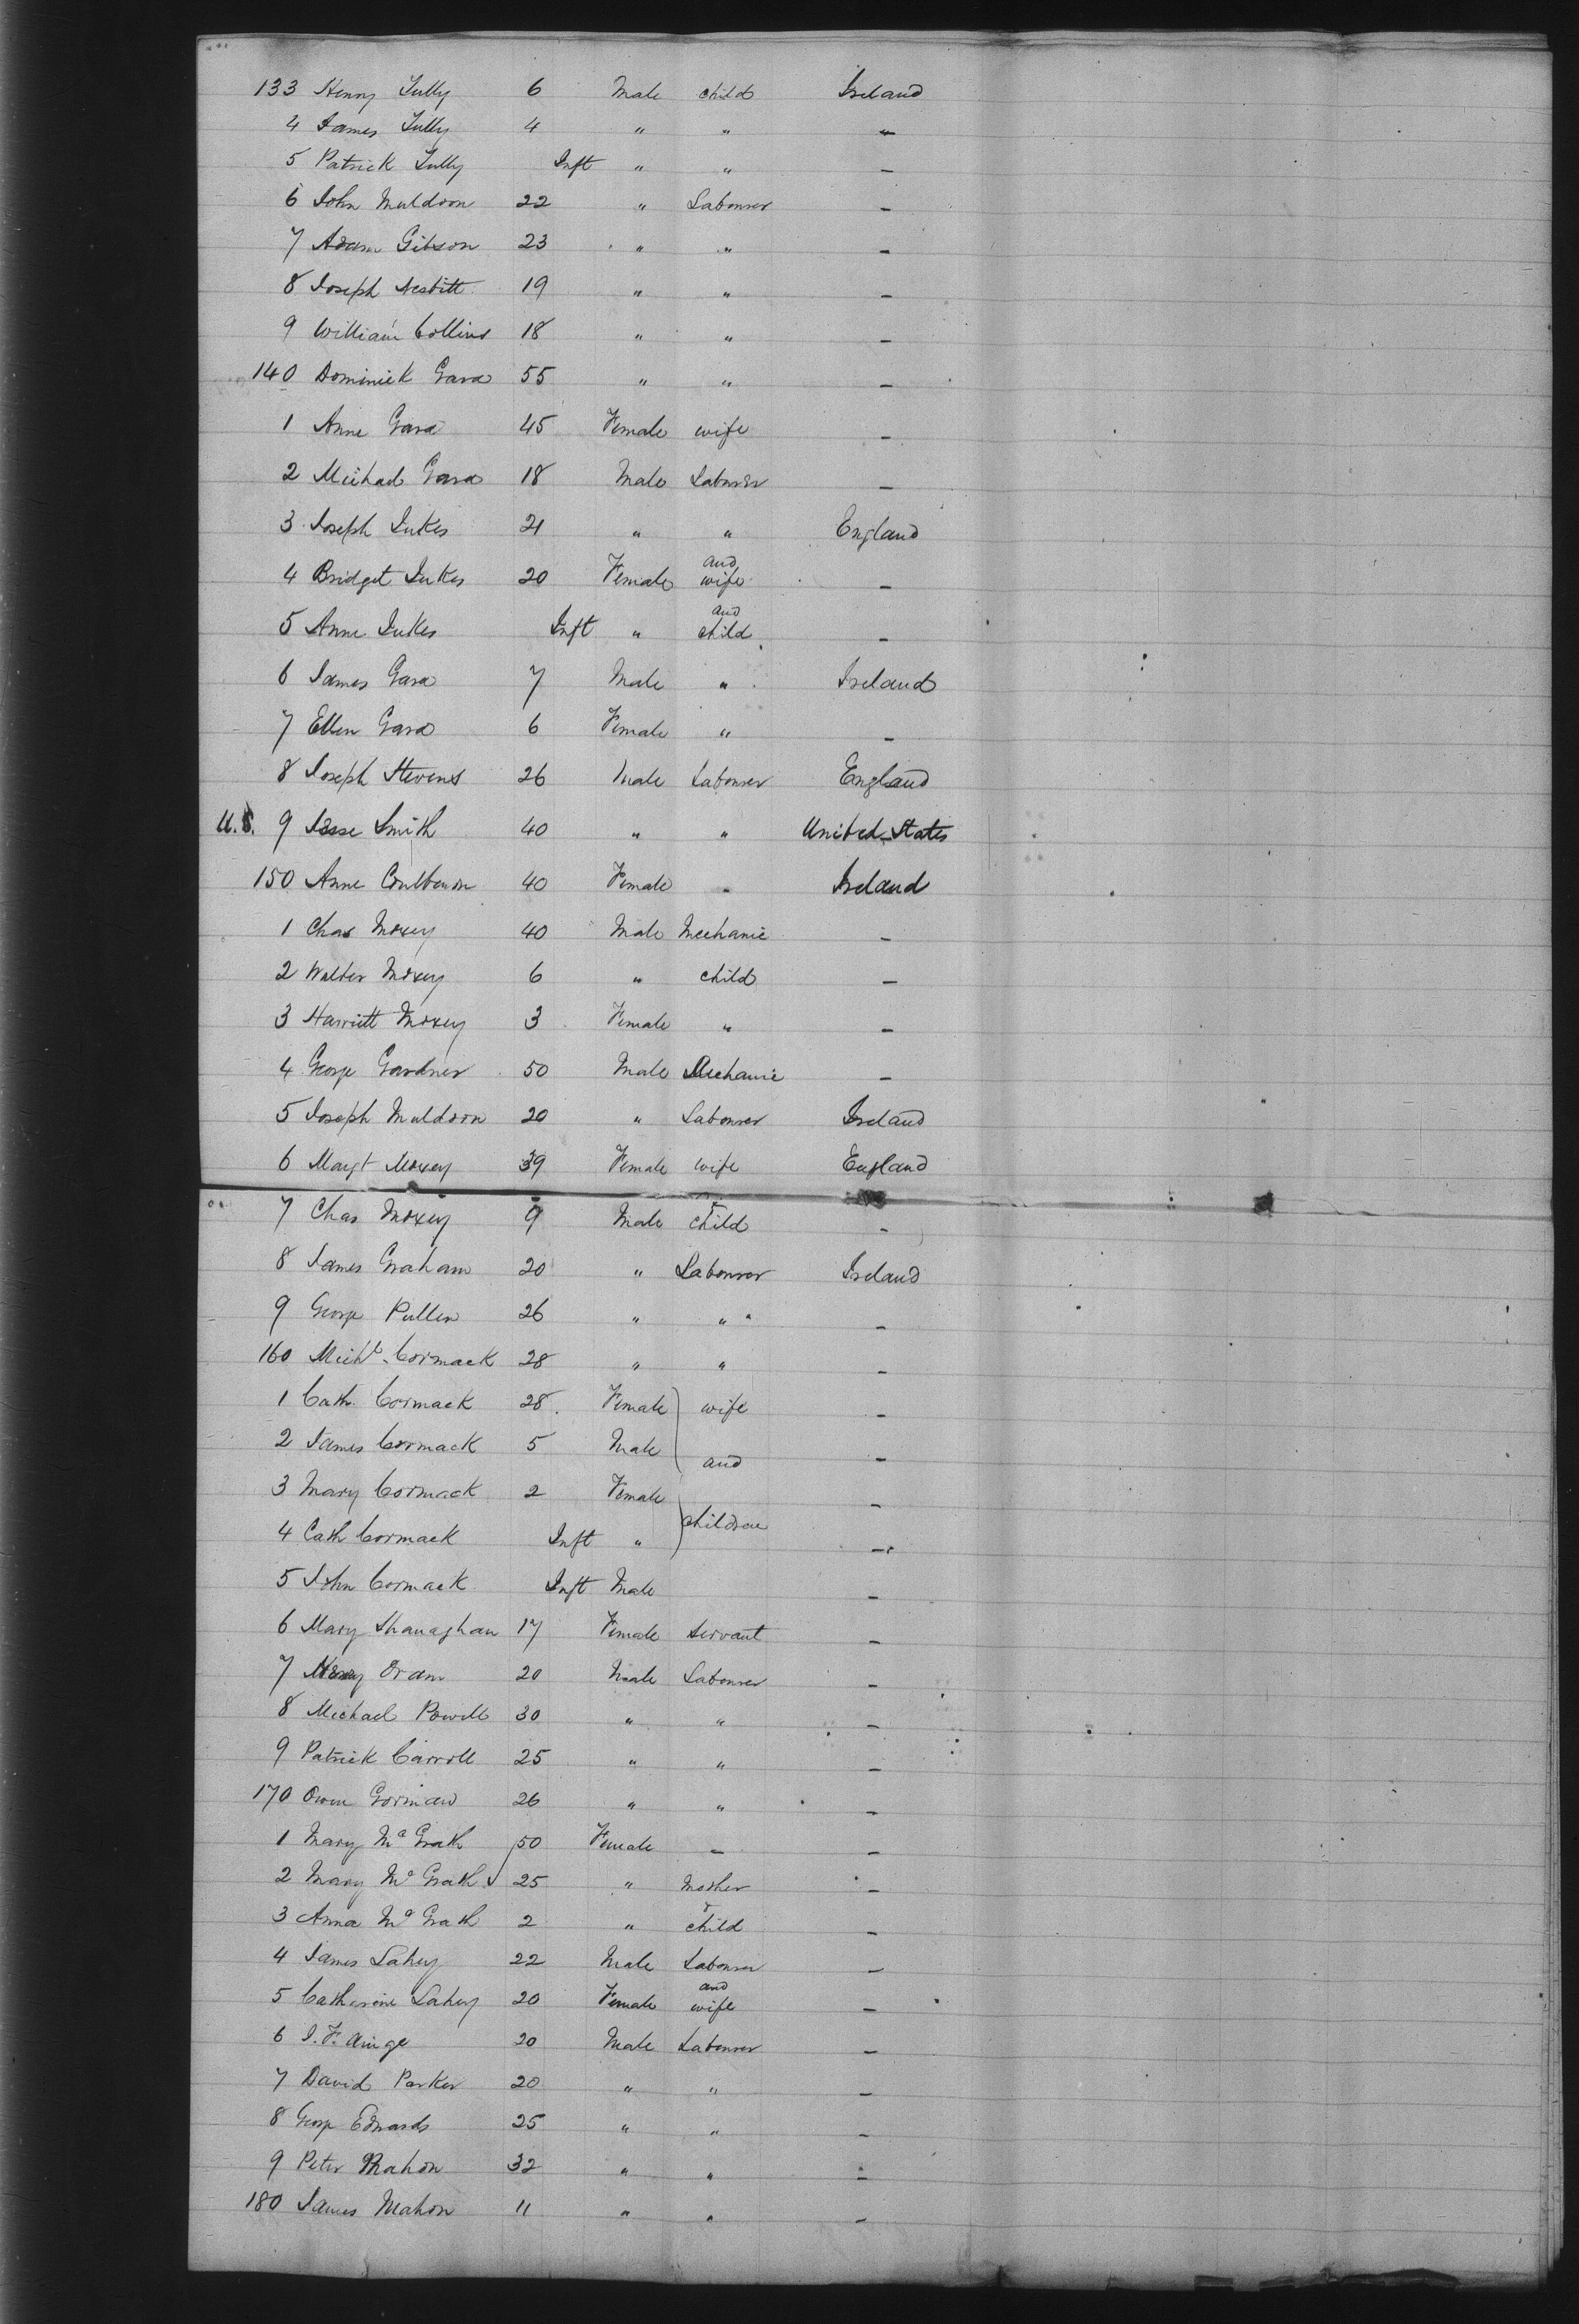 133 Henry Tully 6 Male child Ireland
4 James Tully 4 " " "
5 Patrick Tully Inft " " –
6 John Muldoon 22 " Labourer –
7 Adam Gibson 23 " " –
8 Joseph Nesbitt 19 " " –
9 William Collins 18 " " –
140 Dominick Gara 55 " " –
1 Anne Gara 45 Female wife –
2 Michael Gara 18 Male Labourer –
3 Joseph Jukes 21 " " England
4 Bridget Jukes 20 Female and wife –
5 Anne Jukes Inft " and child –
6 James Gara 7 Male " Ireland
7 Ellen Gara 6 Female " –
8 Joseph Stevens 26 Male Labourer England
U.S. 9 Jesse Smith 40 " " United States
150 Anne 40 Female " Ireland
1 Chas Moxey 40 Male Mechanic –
2 Walter Moxey 6 " child –
3 Harriett Moxey 3 Female " –
4 George Gardner 50 Male Mechanic –
5 Joseph Muldoon 20 " Labourer Ireland
6 Margt Moxey 39 Female wife England
7 Chas Moxey 9 Male & child –
8 James Graham 20 " Labourer Ireland
9 George Pullen 26 " " –
160 Michl. Cormack 28 " " –
1 Cath. Cormack 28 Female wife –
2 James Cormack 5 Male and –
3 Mary Cormack 2 Female –
4 Cath Cormack Inft " children –
5 John Cormack Inft Male –
6 Mary Shanaghan 17 Female Servant –
7 Henry Oram 20 Male Labourer –
8 Michael Powell 30 " " –
9 Patrick Carroll 25 " " –
170 Owen Gorman 26 " " –
1 Mary Mc Grath 50 Female – –
2 Mary Mc Grath 25 " Mother –
3 Anna Mc Grath 2 " & child –
4 James Lahey 22 Male Labourer –
5 Catherine Lahey 20 Female and wife –
6 J. F. Ainge 20 Male Labourer –
7 David Parker 20 " " –
8 George Edwards 25 " " –
9 Peter Mahon 32 " " –
180 James Mahon 11 " " –